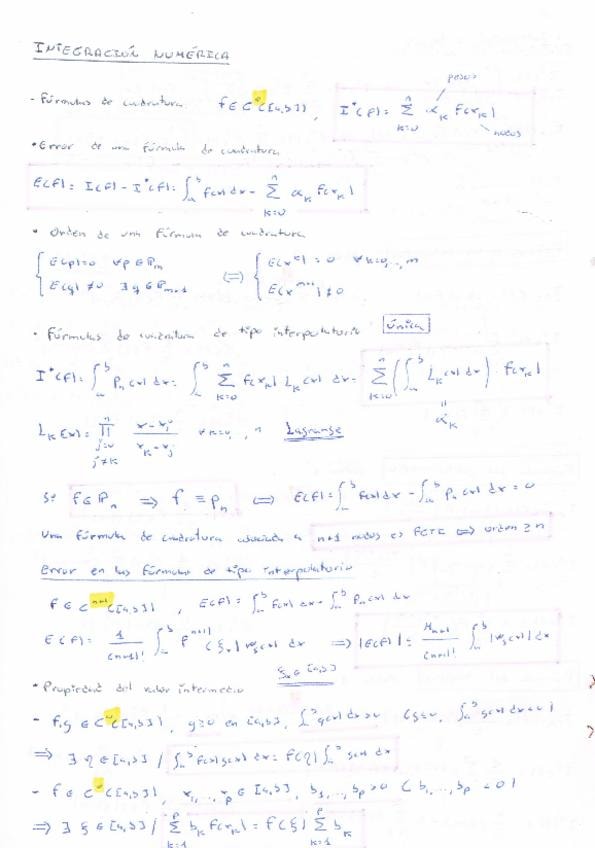 INTEGRACIÓN NUMÉRICA
pesos
- Fórmulas de cuadratura f ∈ C⁰([a,b]), I*(f) = Σ_{k=0}^{n} α_k f(x_k)
nodos
• Error de una fórmula de cuadratura
E(f) = I(f) - I*(f) = ∫_a^b f(x) dx - Σ_{k=0}^{n} α_k f(x_k)
• Orden de una fórmula de cuadratura
{ E(p) = 0 ∀p ∈ P_m ⟺ { E(x^k) = 0 ∀k=0,..,m
E(q) ≠ 0 ∃ q ∈ P_{m+1} E(x^{m+1}) ≠ 0
• Fórmulas de cuadratura de tipo interpolatorio única
I*(f) = ∫_a^b p_n(x) dx = ∫_a^b Σ_{k=0}^{n} f(x_k) L_k(x) dx = Σ_{k=0}^{n} (∫_a^b L_k(x) dx) · f(x_k)
=
α_k
L_k(x) = Π_{j=0, j≠k}^{n} (x - x_j)/(x_k - x_j) ∀k=0,..,n Lagrange
Si f ∈ P_n ⟹ f ≡ p_n ⟺ E(f) = ∫_a^b f(x) dx - ∫_a^b p_n(x) dx = 0
Una fórmula de cuadratura asociada a n+1 nodos es FCTI ⟺ orden ≥ n
Error en las fórmulas de tipo interpolatorio
f ∈ C^{n+1}([a,b]), E(f) = ∫_a^b f(x) dx - ∫_a^b p_n(x) dx
E(f) = 1/(n+1)! ∫_a^b f^{n+1}(ξ_x) w(x) dx ⟹ |E(f)| ≤ M_{n+1}/(n+1)! ∫_a^b |w(x)| dx
ξ_x ∈ [a,b]
• Propiedad del valor intermedio
- f,g ∈ C⁰([a,b]), g≥0 en [a,b], ∫_a^b g(x) dx > 0 (g≤0, ∫_a^b g(x) dx < 0)
⟹ ∃ η ∈ [a,b] / ∫_a^b f(x) g(x) dx = f(η) ∫_a^b g(x) dx
- f ∈ C⁰([a,b]), x_1,..,x_p ∈ [a,b], b_1,..,b_p > 0 (b_1,..,b_p < 0)
⟹ ∃ ξ ∈ [a,b] / Σ_{k=1}^{p} b_k f(x_k) = f(ξ) Σ_{k=1}^{p} b_k